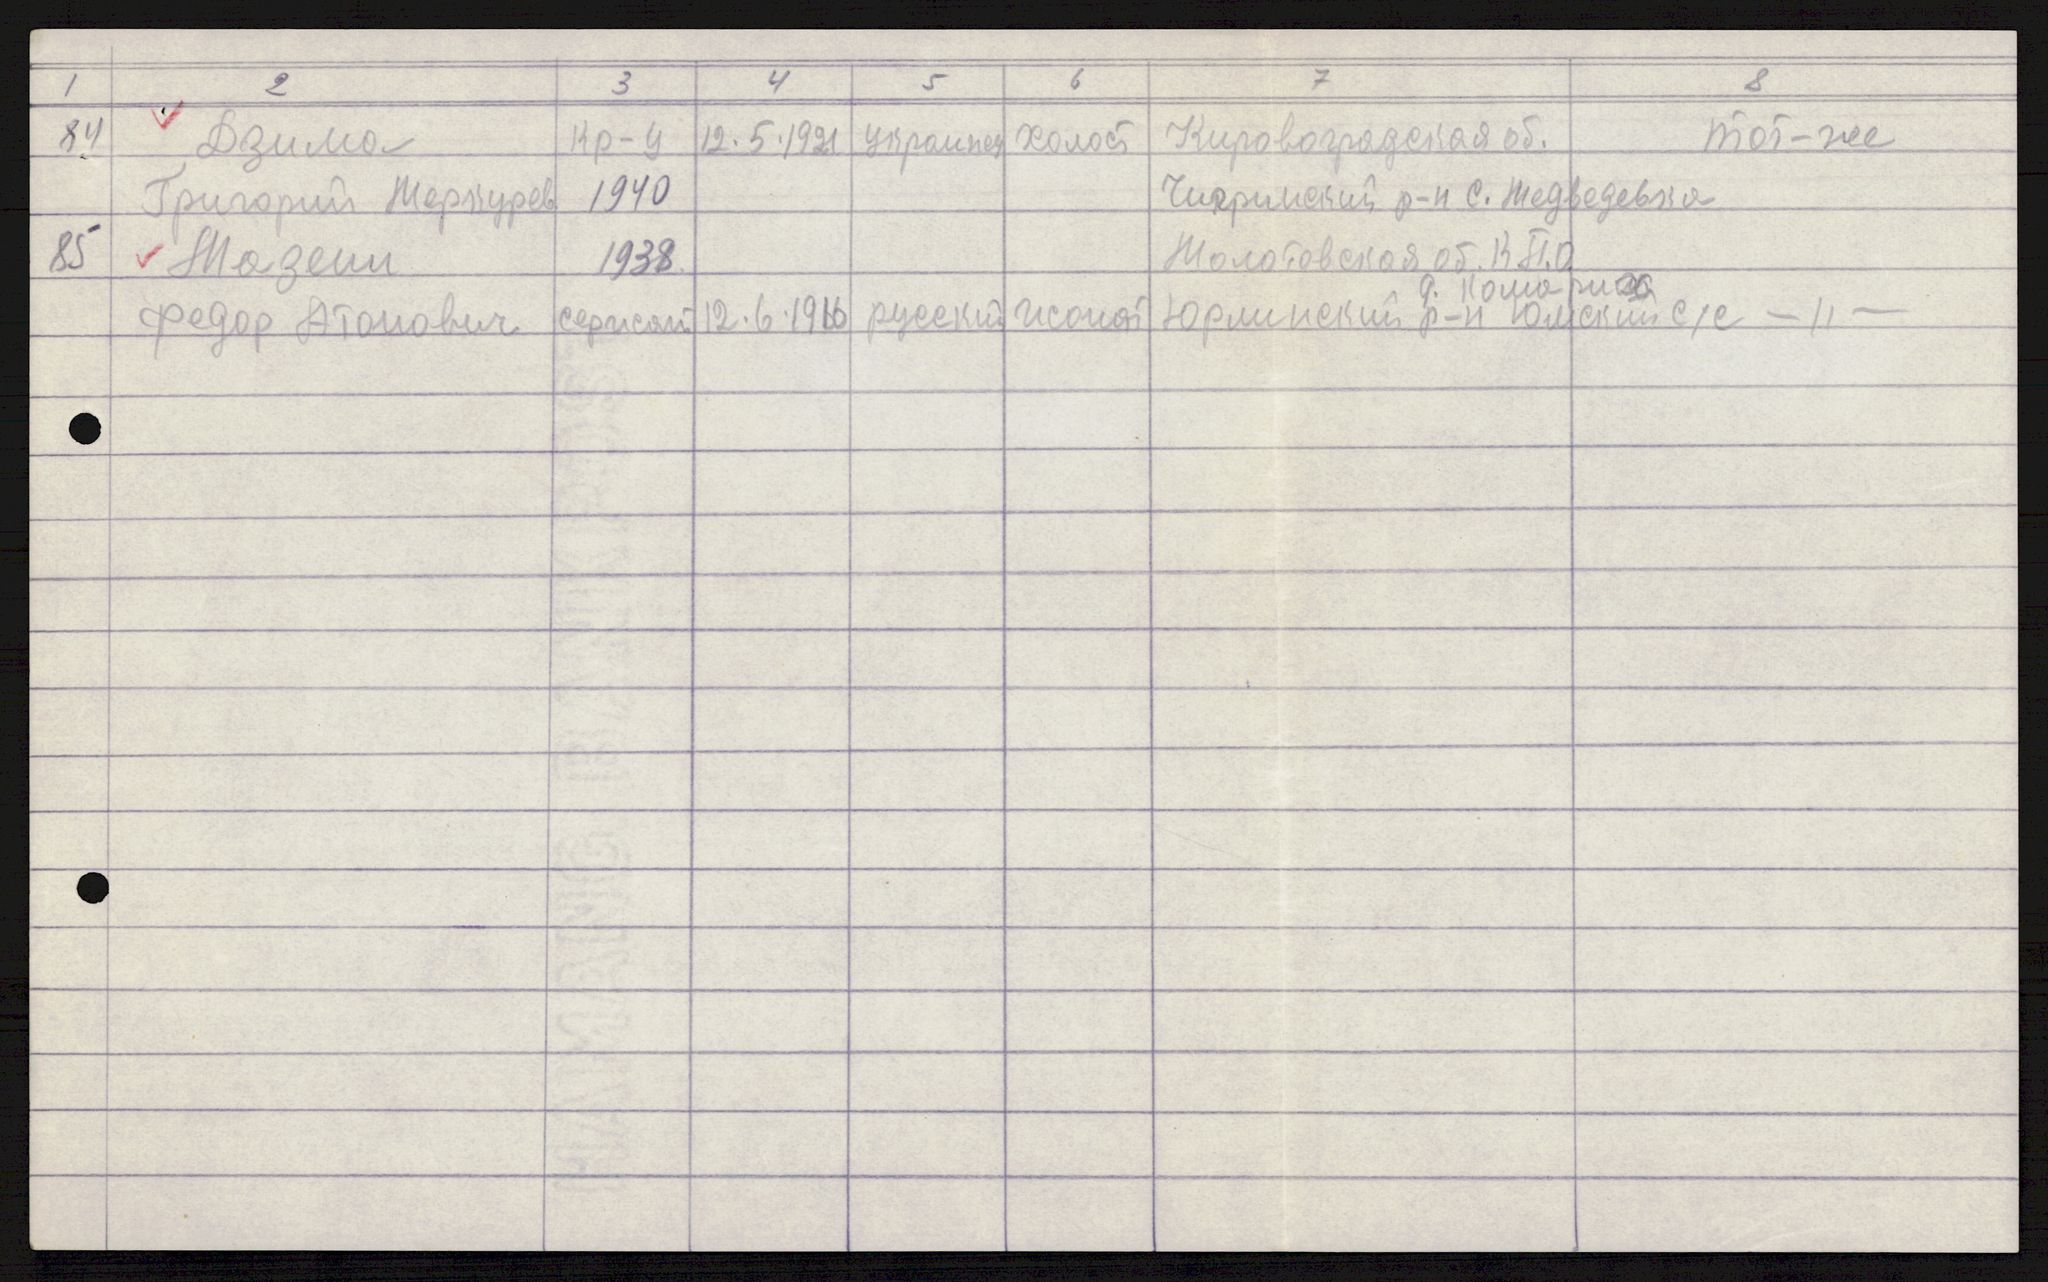 1 2 3 4 5 6 7 8
84 Дзима кр-ц 12.5.1921 украинец холост Кировоградская об. тот-же
Григорий Меркурев 1940 Чигринский р-н с. Медведевка
85 Мазеин 1938 Молотовская об. К.П.О
д.
федор Атонович сержант 12.6.1916 русский женат Юрлинский р-н Юмский с/с — 11 —